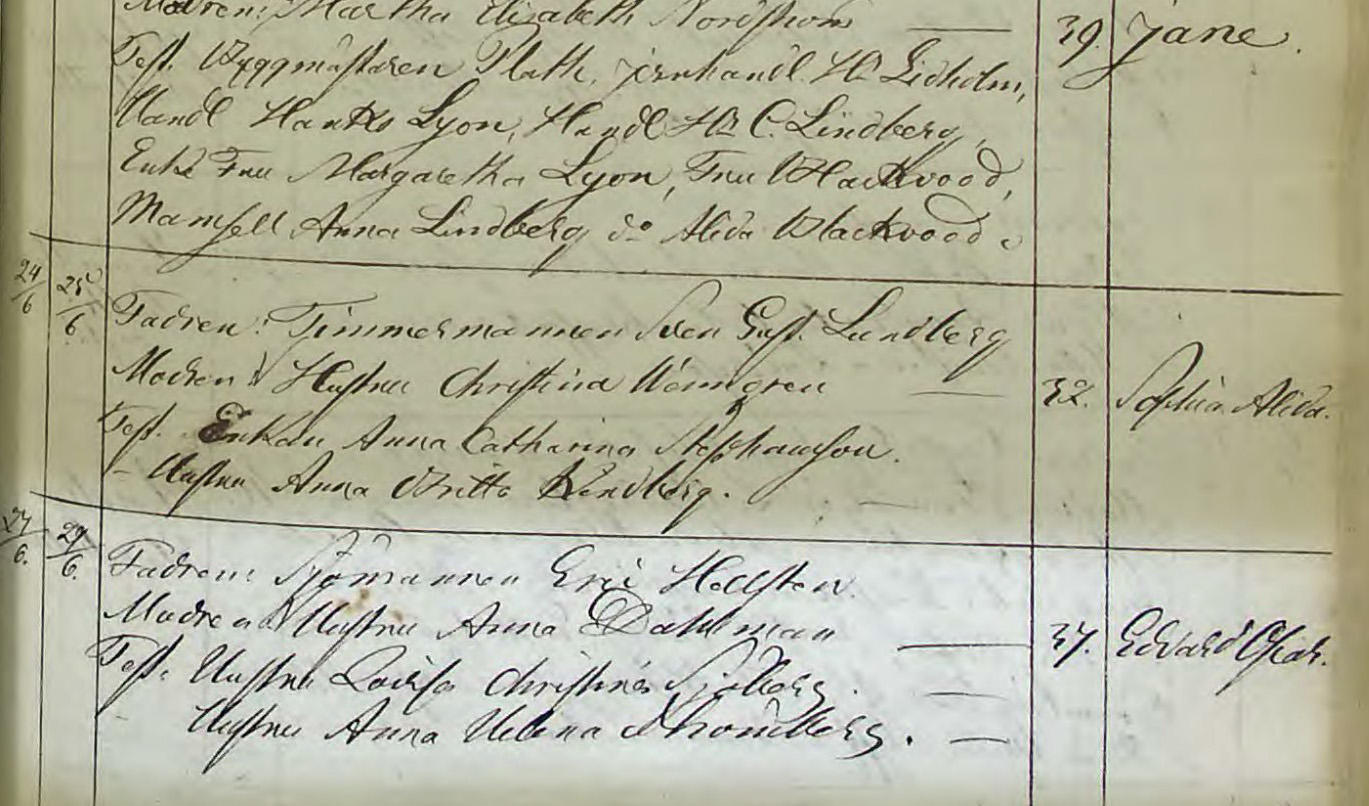 Modren: Martha Elisabeth Nordström 39. Jane.
Test. Byggmästaren Plath, Jernhandl. Hr Lidholm,
Handl Hanks Lyon, Handl Hr C. Lindberg,
Enke Fru Margaretha Lyon, Fru Blackvood,
Mamsell Anna Lindberg do Alida Blackvood
24/6 25/6 Fadren: Timmermannen Sven Gust. Lundberg
Modren: Hustru Christina Wenngren 32. Sophia Alida.
Test. Enkan Anna Catharina Stephansson.
- Hustru Anna Britta Lindberg.
27/6. 29/6. Fadren: Sjömannen Eric Hellsten.
Modren Hustru Anna Dahlman 37. Edvard Oscar.
Test. Hustru Lovisa Christina Sjöberg.
Hustru Anna Helena Stromberg.